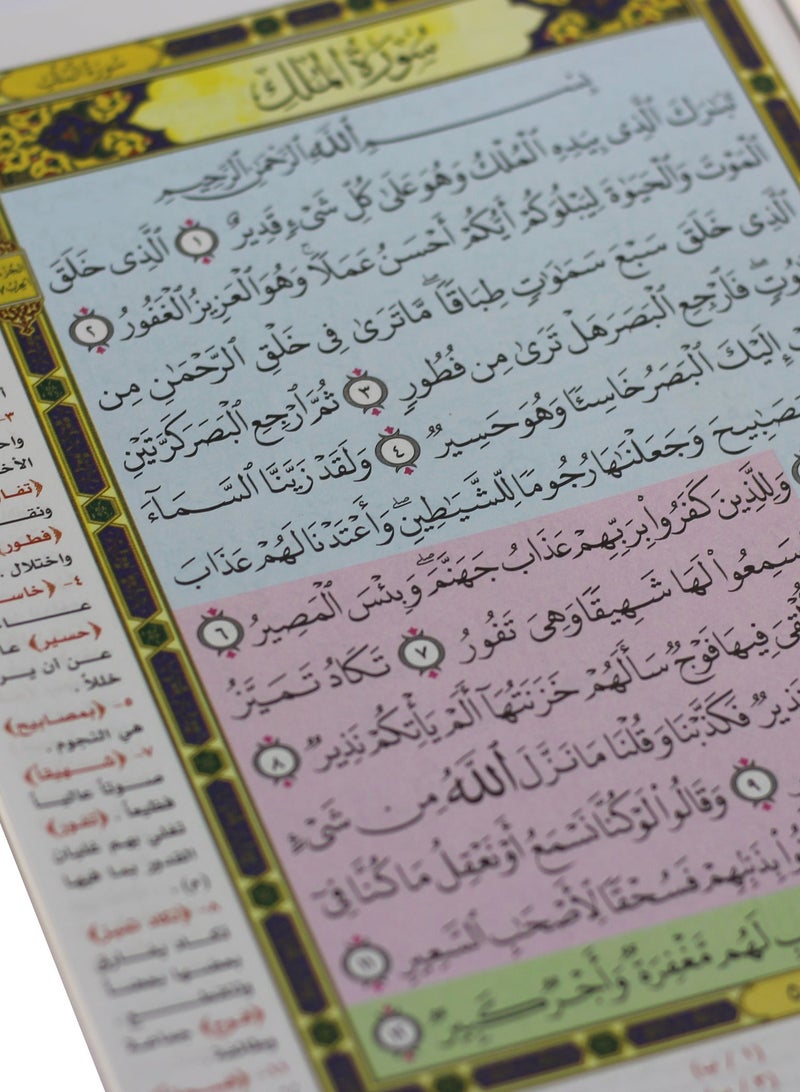 سورة الملك
سُورَةُ المُلْكِ
بِسْمِ ٱللَّهِ ٱلرَّحْمَٰنِ ٱلرَّحِيمِ
تَبَٰرَكَ ٱلَّذِى بِيَدِهِ ٱلْمُلْكُ وَهُوَ عَلَىٰ كُلِّ شَىْءٍ قَدِيرٌ ١ ٱلَّذِى خَلَقَ
ٱلْمَوْتَ وَٱلْحَيَوٰةَ لِيَبْلُوَكُمْ أَيُّكُمْ أَحْسَنُ عَمَلًا ۚ وَهُوَ ٱلْعَزِيزُ ٱلْغَفُورُ ٢
ٱلَّذِى خَلَقَ سَبْعَ سَمَٰوَٰتٍ طِبَاقًا ۖ مَّا تَرَىٰ فِى خَلْقِ ٱلرَّحْمَٰنِ مِن
فَٱرْجِعِ ٱلْبَصَرَ هَلْ تَرَىٰ مِن فُطُورٍ ٣ ثُمَّ ٱرْجِعِ ٱلْبَصَرَ كَرَّتَيْنِ
إِلَيْكَ ٱلْبَصَرُ خَاسِئًا وَهُوَ حَسِيرٌ ٤ وَلَقَدْ زَيَّنَّا ٱلسَّمَآءَ
وَجَعَلْنَٰهَا رُجُومًا لِّلشَّيَٰطِينِ ۖ وَأَعْتَدْنَا لَهُمْ عَذَابَ
وَلِلَّذِينَ كَفَرُوا۟ بِرَبِّهِمْ عَذَابُ جَهَنَّمَ ۖ وَبِئْسَ ٱلْمَصِيرُ ٦
سَمِعُوا۟ لَهَا شَهِيقًا وَهِىَ تَفُورُ ٧ تَكَادُ تَمَيَّزُ
فِيهَا فَوْجٌ سَأَلَهُمْ خَزَنَتُهَآ أَلَمْ يَأْتِكُمْ نَذِيرٌ ٨
نَذِيرٌ فَكَذَّبْنَا وَقُلْنَا مَا نَزَّلَ ٱللَّهُ مِن شَىْءٍ
٩ وَقَالُوا۟ لَوْ كُنَّا نَسْمَعُ أَوْ نَعْقِلُ مَا كُنَّا فِىٓ
بِذَنۢبِهِمْ فَسُحْقًا لِّأَصْحَٰبِ ٱلسَّعِيرِ ١١
لَهُم مَّغْفِرَةٌ وَأَجْرٌ كَبِيرٌ ١٢
٣-
﴿فطور
واختلال .
٤- ﴿خاس
﴿حسير﴾
عن ان ير
خللاً .
٥- ﴿بمصابيح﴾
هي النجوم .
٧- ﴿شهيقاً﴾
صوتاً عالياً
فظيعاً . ﴿تفور﴾
تغلي بهم غليان
القدور بما فيها
(م) .
٨- ﴿تكاد تميز﴾
﴿فوج﴾ جماعة